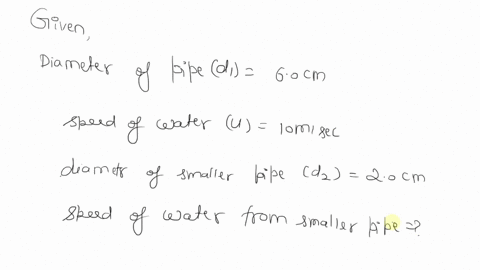 Given,
Diameter of pipe (d1) = 6.0 cm
speed of water (u) = 10 m/sec
diametr of smaller pipe (d2) = 2.0 cm
speed of water from smaller pipe = ?